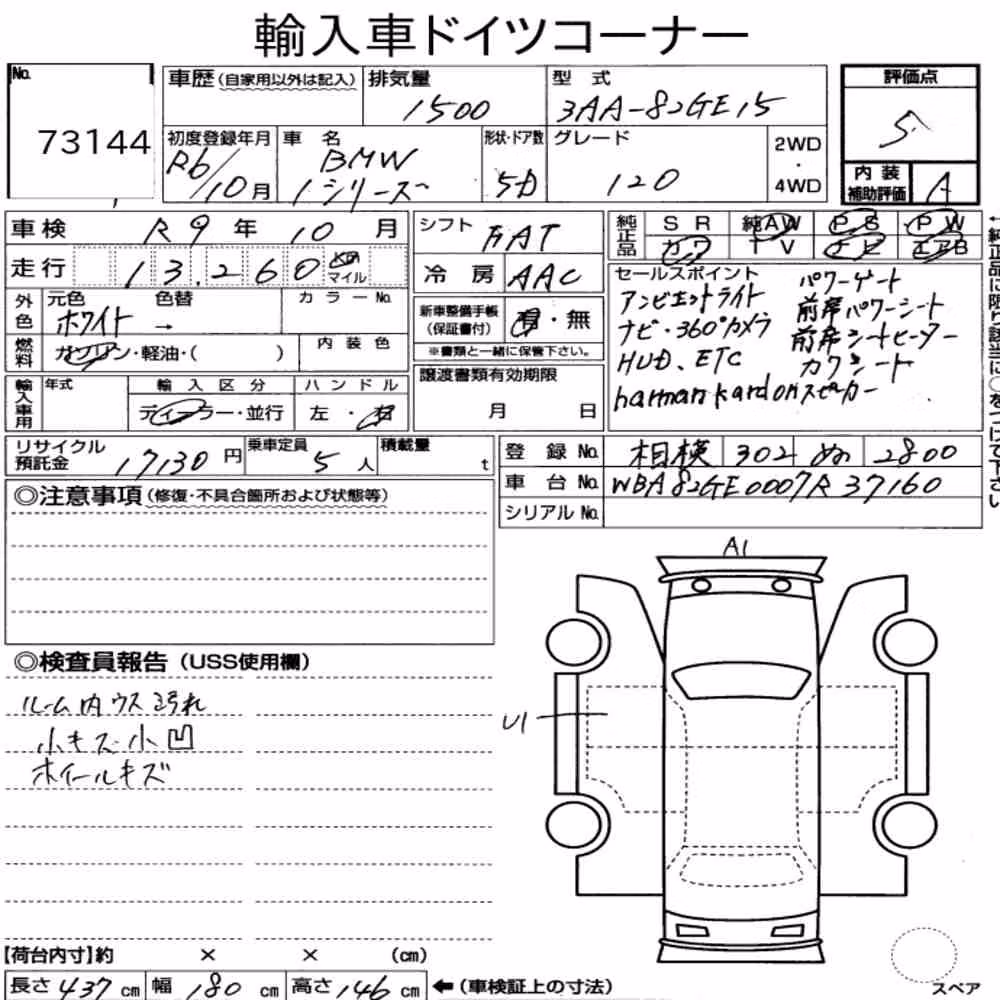 輸入車ドイツコーナー
No. 73144
車歴(自家用以外は記入) 排気量 1500 型式 3AA-82GE15
初度登録年月 R6/10月 車名 BMW 1シリーズ 形状・ドア数 5D グレード 120 2WD・4WD
評価点 5
内装補助評価 A
車検 R9年 10月
走行 13,260 km マイル
外色 元色 ホワイト 色替 → カラーNo.
燃料 ガソリン・軽油・( ) 内装色
輸入車用 年式 輸入区分 ディーラー・並行 ハンドル 左・右
シフト FAT
冷房 AAC
新車整備手帳(保証書付) 有・無
※書類と一緒に保管下さい。
譲渡書類有効期限 月 日
純正品 SR 純AW PS PW
カワ TV ナビ エアB
セールスポイント
アンビエントライト パワーゲート
ナビ・360°カメラ 前席パワーシート
HUD、ETC 前席シートヒーター
harman kardonスピーカー カワシート
←純正品に限り該当に○をつけて下さい
リサイクル預託金 17130円 乗車定員 5人 積載量 t
登録No. 相模 302 ぬ 2800
車台No. WBA82GE0007R37160
シリアルNo.
◎注意事項(修復・不具合箇所および状態等)
A1
◎検査員報告(USS使用欄)
ルーム内ウス汚れ
小キズ小凹
ホイールキズ
U1
【荷台内寸】約 × × (cm)
長さ437cm 幅180cm 高さ146cm ←(車検証上の寸法)
スペア